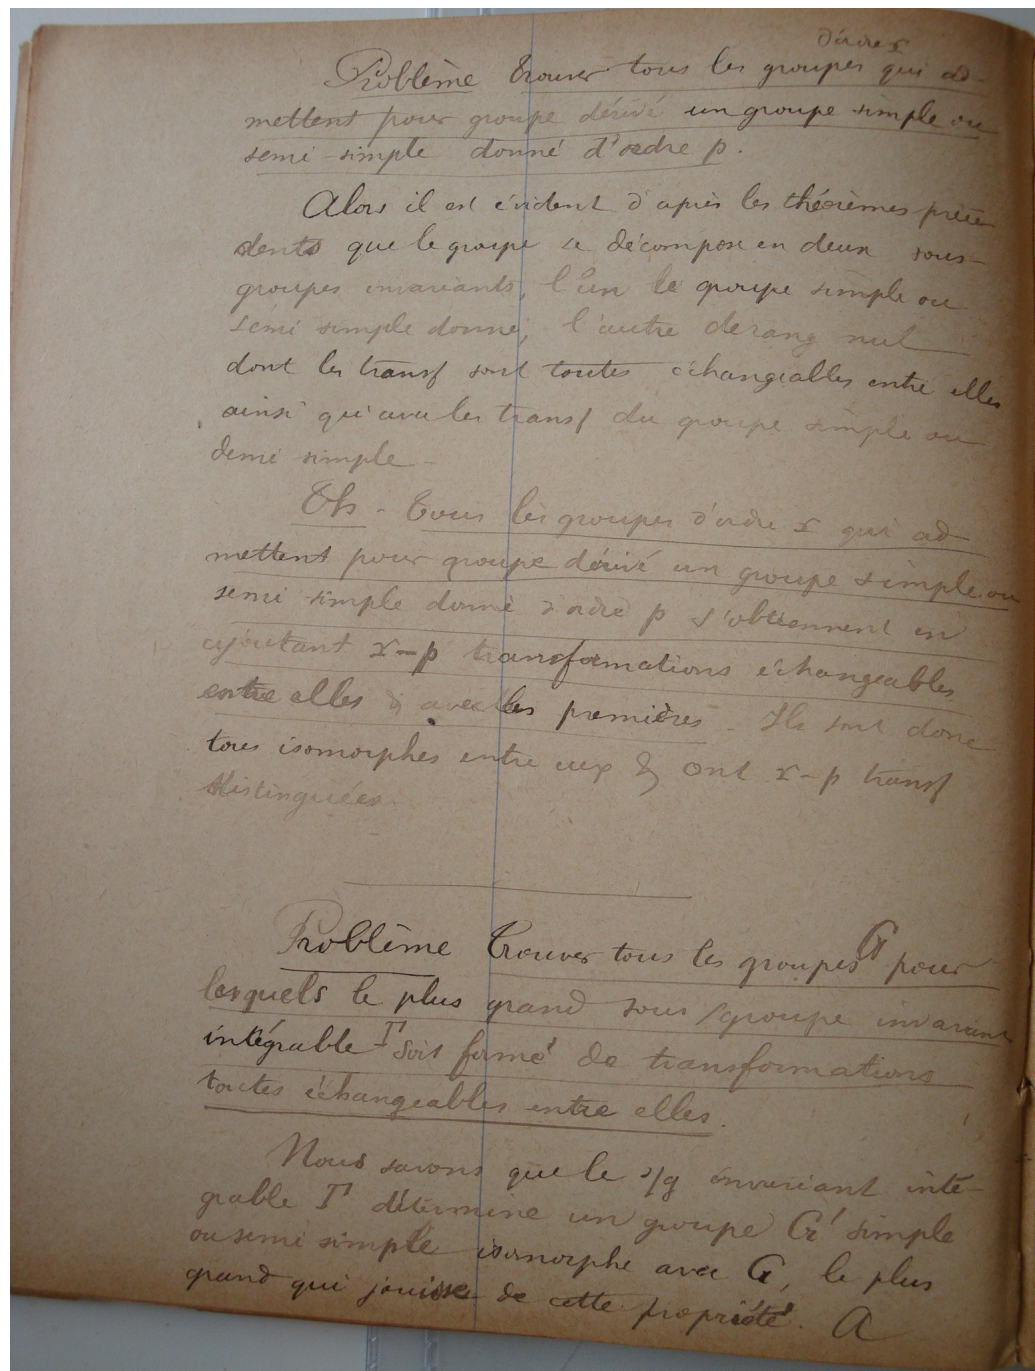 d'ordre r
Problème Trouver tous les groupes qui ad-
mettent pour groupe dérivé un groupe simple ou
semi-simple donné d'ordre p.
Alors il est évident d'après les théorèmes précé
dents que le groupe se décompose en deux sous-
groupes invariants, l'un le groupe simple ou
semi simple donné, l'autre de rang nul
dont les transf sont toutes échangeables entre elles
ainsi qu'avec les transf du groupe simple ou
demi simple -
Th - Tous les groupes d'ordre r qui ad-
mettent pour groupe dérivé un groupe simple ou
semi simple donné d'ordre p s'obtiennent en
ajoutant r-p transformations échangeables
entre elles & avec les premières - Ils sont donc
tous isomorphes entre eux & ont r-p transf
distinguées.
Problème Trouver tous les groupes G pour
lesquels le plus grand sous/groupe invariant
intégrable Γ soit formé de transformations
toutes échangeables entre elles.
Nous savons que le s/g invariant inté-
grable Γ détermine un groupe G' simple
ou semi simple isomorphe avec G, le plus
grand qui jouisse de cette propriété. A